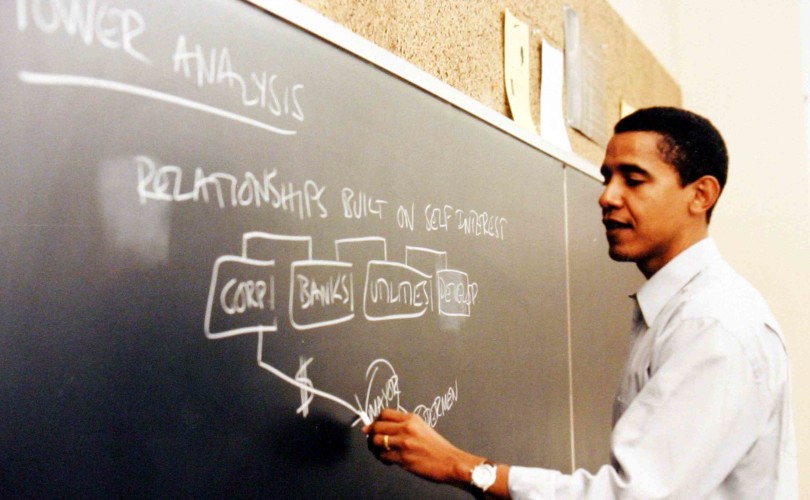 POWER ANALYSIS
RELATIONSHIPS BUILT ON SELF INTEREST
CORP BANKS UTILITIES DEVELOP.
$ MAYOR